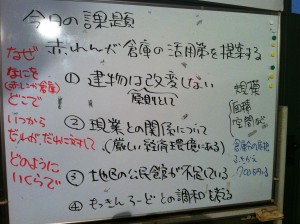 今日の課題
赤れんが倉庫の活用策を提案する
① 建物は改変しない
原則として
② 現業との関係について
(厳しい経済環境にある)
③ 地区の公民館が不足している
④ もっきんろーどとの調和を図る
なぜ
なにを
(赤レンガ倉庫)
どこで
いつから
だれが、だれに対して
どのように
いくらで
規模
面積
空間など